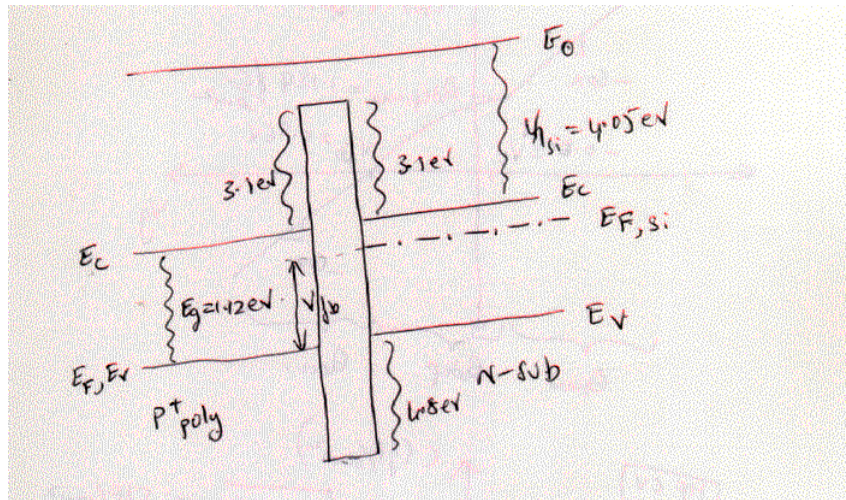 E₀
3.1eV
3.1eV
χsi = 4.05eV
Ec
EF, si
Ec
Eg=1.12eV
Vfb
Ev
EF, Ev
P+ poly
4.8eV
N-sub